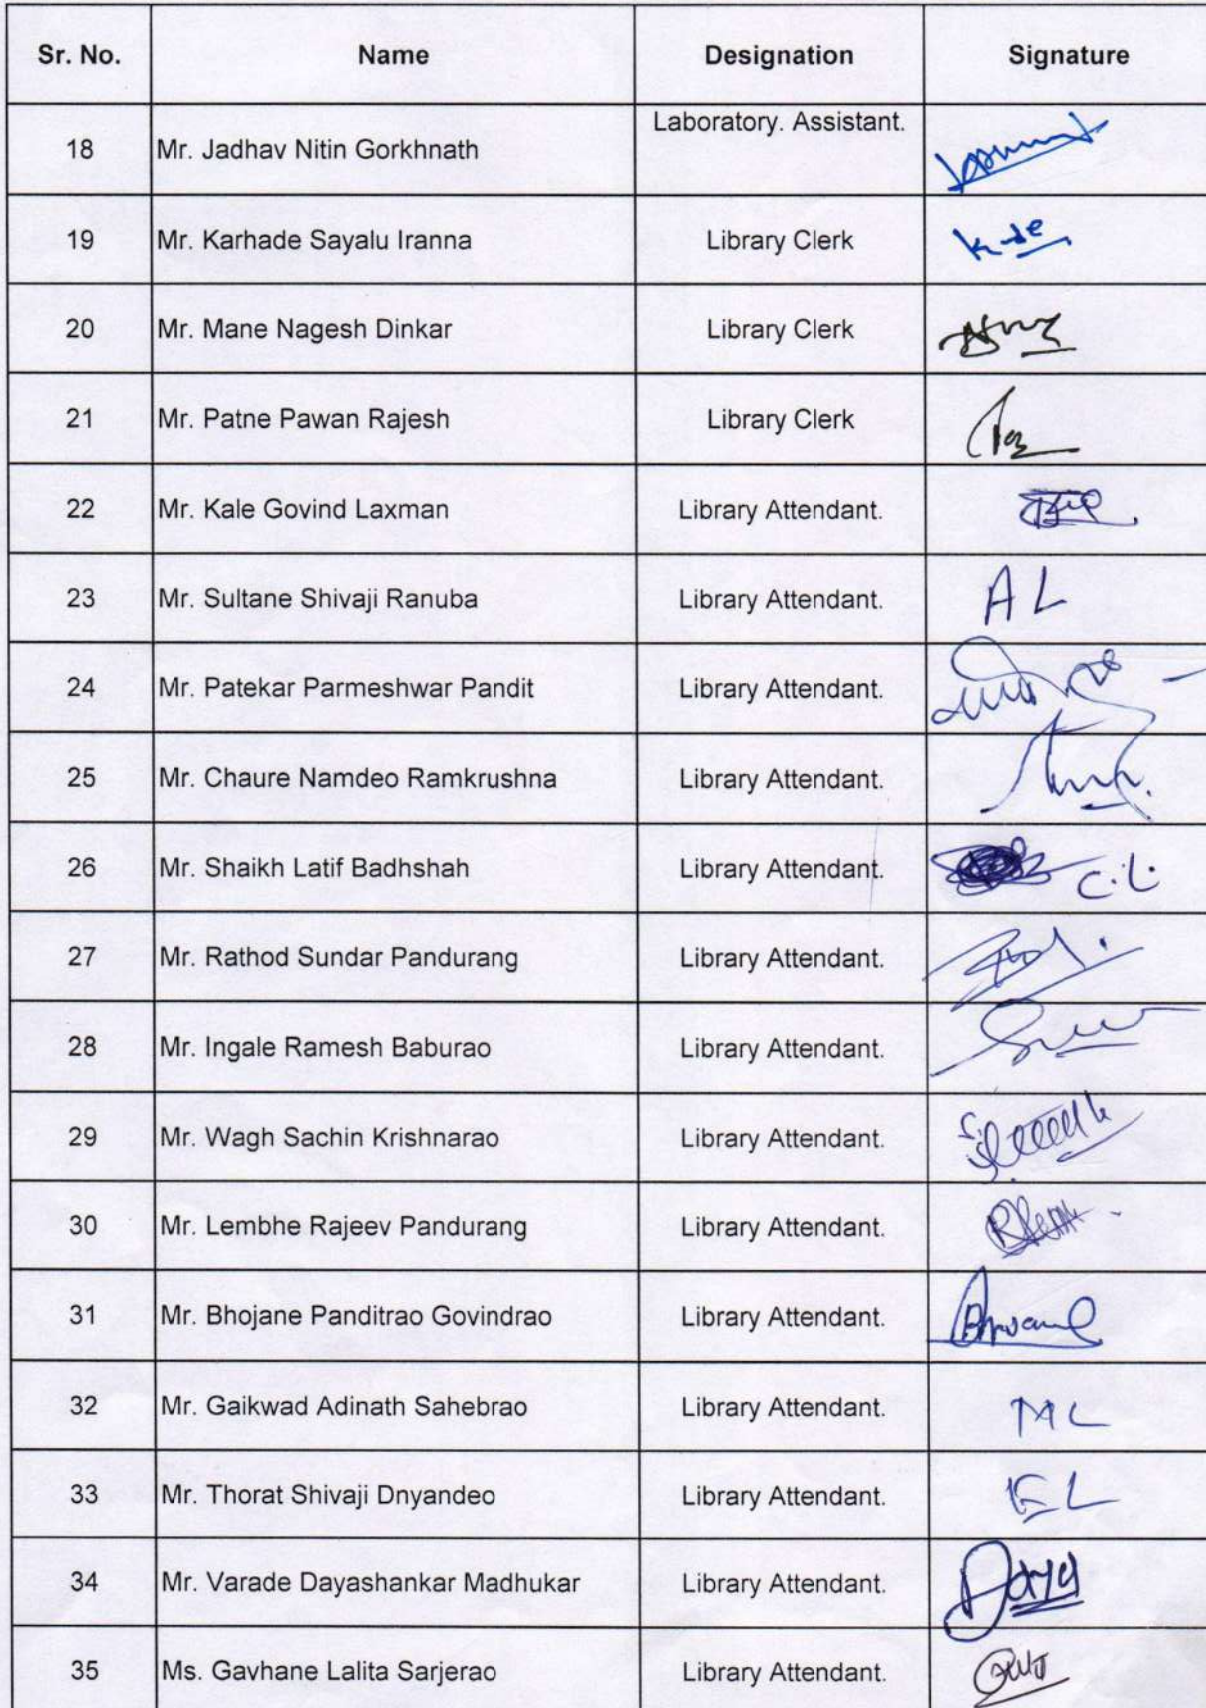 Sr. No. Name Designation Signature
18 Mr. Jadhav Nitin Gorkhnath Laboratory. Assistant.
19 Mr. Karhade Sayalu Iranna Library Clerk
20 Mr. Mane Nagesh Dinkar Library Clerk
21 Mr. Patne Pawan Rajesh Library Clerk
22 Mr. Kale Govind Laxman Library Attendant.
23 Mr. Sultane Shivaji Ranuba Library Attendant. A L
24 Mr. Patekar Parmeshwar Pandit Library Attendant.
25 Mr. Chaure Namdeo Ramkrushna Library Attendant.
26 Mr. Shaikh Latif Badhshah Library Attendant. C.L.
27 Mr. Rathod Sundar Pandurang Library Attendant.
28 Mr. Ingale Ramesh Baburao Library Attendant.
29 Mr. Wagh Sachin Krishnarao Library Attendant.
30 Mr. Lembhe Rajeev Pandurang Library Attendant.
31 Mr. Bhojane Panditrao Govindrao Library Attendant.
32 Mr. Gaikwad Adinath Sahebrao Library Attendant. M L
33 Mr. Thorat Shivaji Dnyandeo Library Attendant. E L
34 Mr. Varade Dayashankar Madhukar Library Attendant.
35 Ms. Gavhane Lalita Sarjerao Library Attendant.